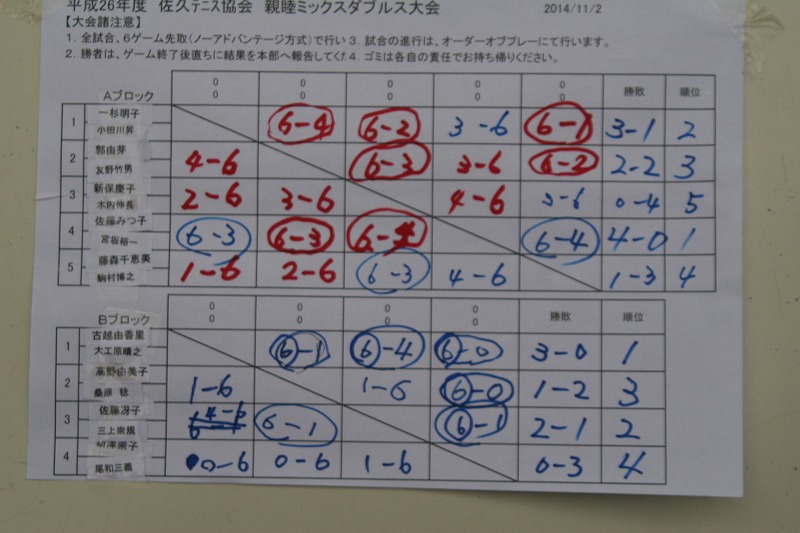 平成26年度 佐久テニス協会 親睦ミックスダブルス大会 2014/11/2
【大会諸注意】
1. 全試合、6ゲーム先取(ノーアドバンテージ方式)で行い 3. 試合の進行は、オーダーオブプレーにて行います。
2. 勝者は、ゲーム終了後直ちに結果を本部へ報告してくだ 4. ゴミは各自の責任でお持ち帰りください。
Aブロック 0 0 0 0 0 0 0 0 0 0 勝敗 順位
1 一杉明子 小田川昇 6-4 6-2 3-6 6-1 3-1 2
2 郭由芽 友野竹男 4-6 6-3 3-6 6-2 2-2 3
3 新保慶子 木内伸長 2-6 3-6 4-6 3-6 0-4 5
4 佐藤みつ子 宮坂裕一 6-3 6-3 6-4 6-4 4-0 1
5 藤森千恵美 駒村博之 1-6 2-6 6-3 4-6 1-3 4
Bブロック 0 0 0 0 0 0 0 0 勝敗 順位
1 古越由香里 大工原晴之 6-1 6-4 6-0 3-0 1
2 高野由美子 桑原 稔 1-6 1-6 6-0 1-2 3
3 佐藤冴子 三上崇規 4-6 6-1 6-1 2-1 2
4 規子 尾和三義 0-6 0-6 1-6 0-3 4